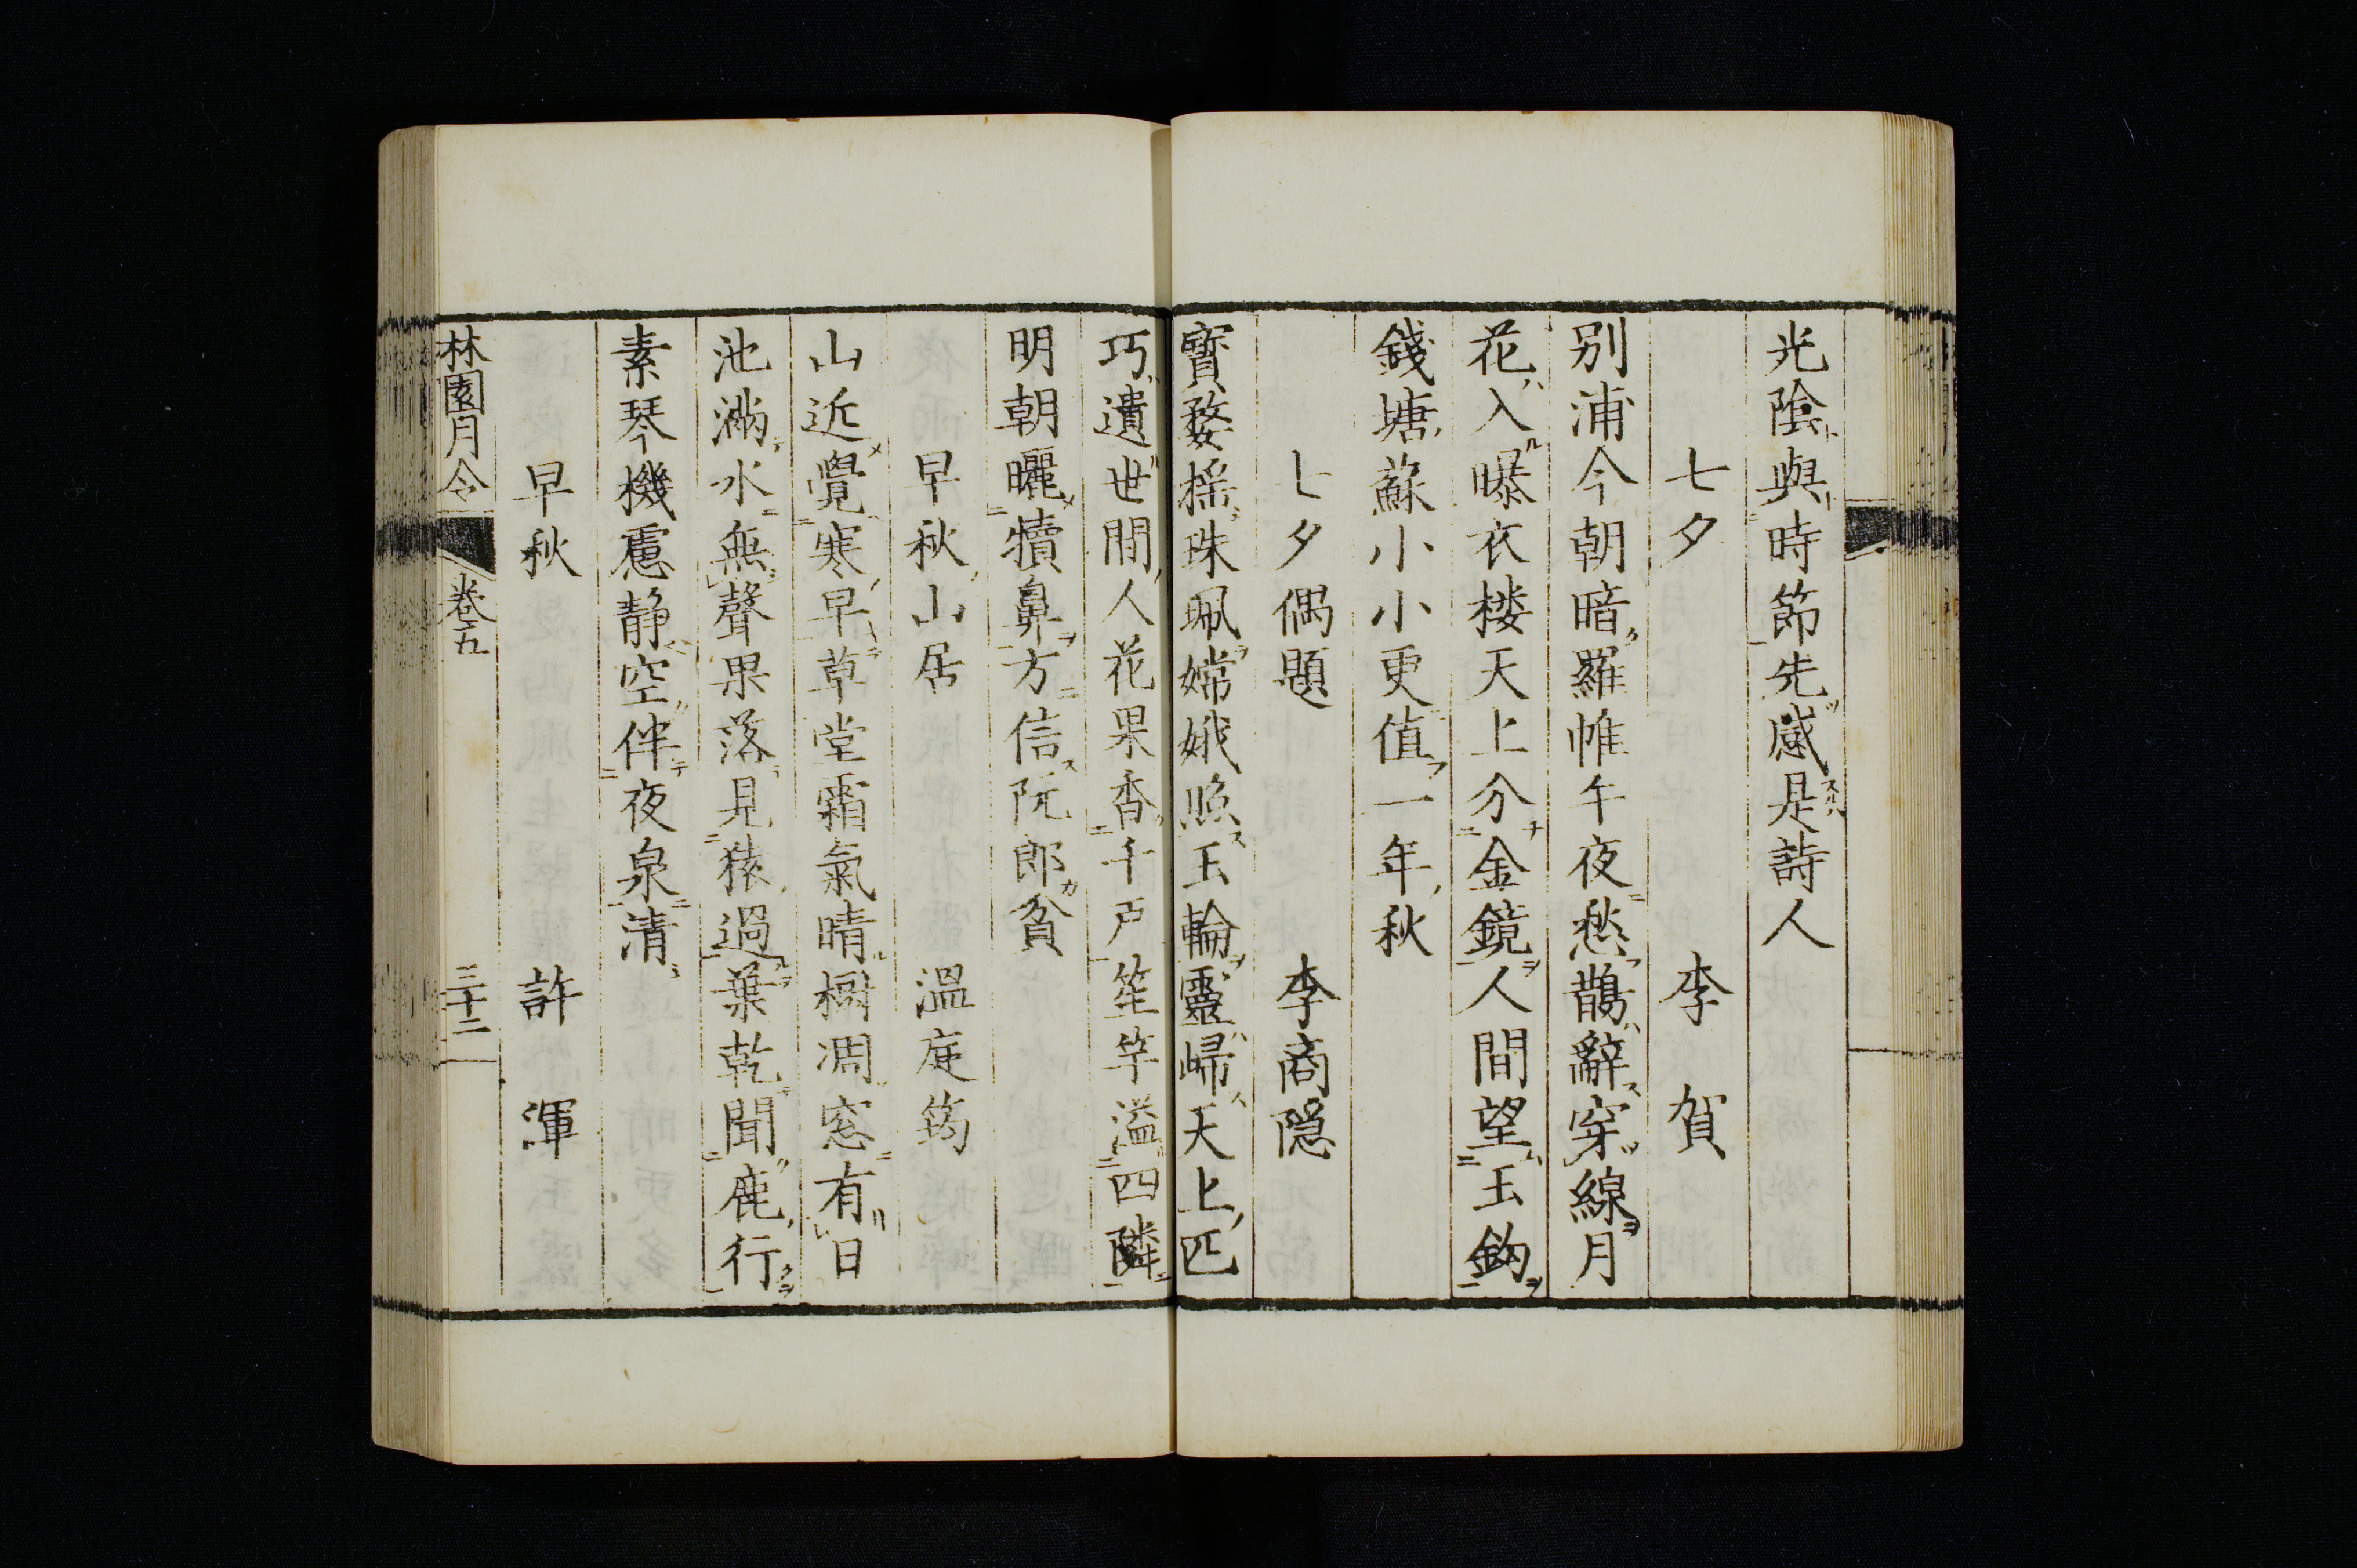 光陰與時節先感是詩人
七夕 李賀
別浦今朝暗羅帷午夜愁鵲辭穿線月
花入曝衣楼天上分金鏡人間望玉鈎
錢塘蘇小小更值一年秋
七夕偶題 李商隱
寳婺揺珠珮嫦娥照玉輪靈歸天上匹
巧遺世間人花果香千戸笙竽溢四隣
明朝曬犢鼻方信阮郎貧
早秋山居 溫庭筠
山近覺寒早草堂霜氣晴樹凋窓有日
池滿水無聲果落見猿過葉乾聞鹿行
素琴機慮静空伴夜泉清
早秋 許渾
林園月令 卷五 三十二